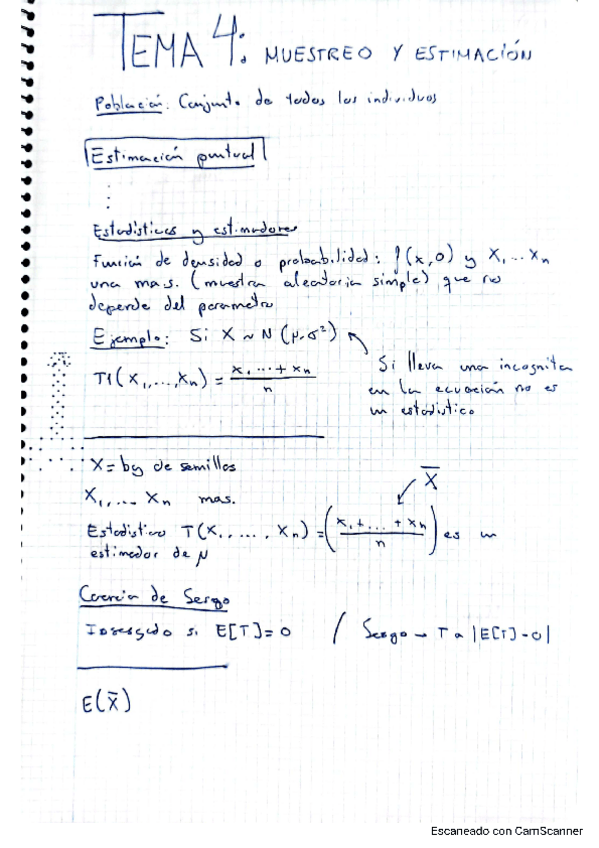 TEMA 4: MUESTREO Y ESTIMACIÓN
Población: Conjunto de todos los individuos
Estimación puntual
Estadísticas y estimadores
Función de densidad o probabilidad: f(x,0) y X,...Xn
una m.a.s. (muestra aleatoria simple) que no
depende del parametro
Ejemplo: Si X ~ N (μ,σ²)
Si lleva una incognita
en la ecuación no es
un estadistico
T1(X1,...,Xn) = x1 ... + xn / n
X = kg de semillas
X1,... Xn mas.
X̄
Estadistico T(X1,...,Xn) = (x1+...+xn / n) es un
estimador de μ
Carencia de Sesgo
Insesgado si E[T]=0 / Sesgo → T a |E[T]-0|
E(X̄)
Escaneado con CamScanner